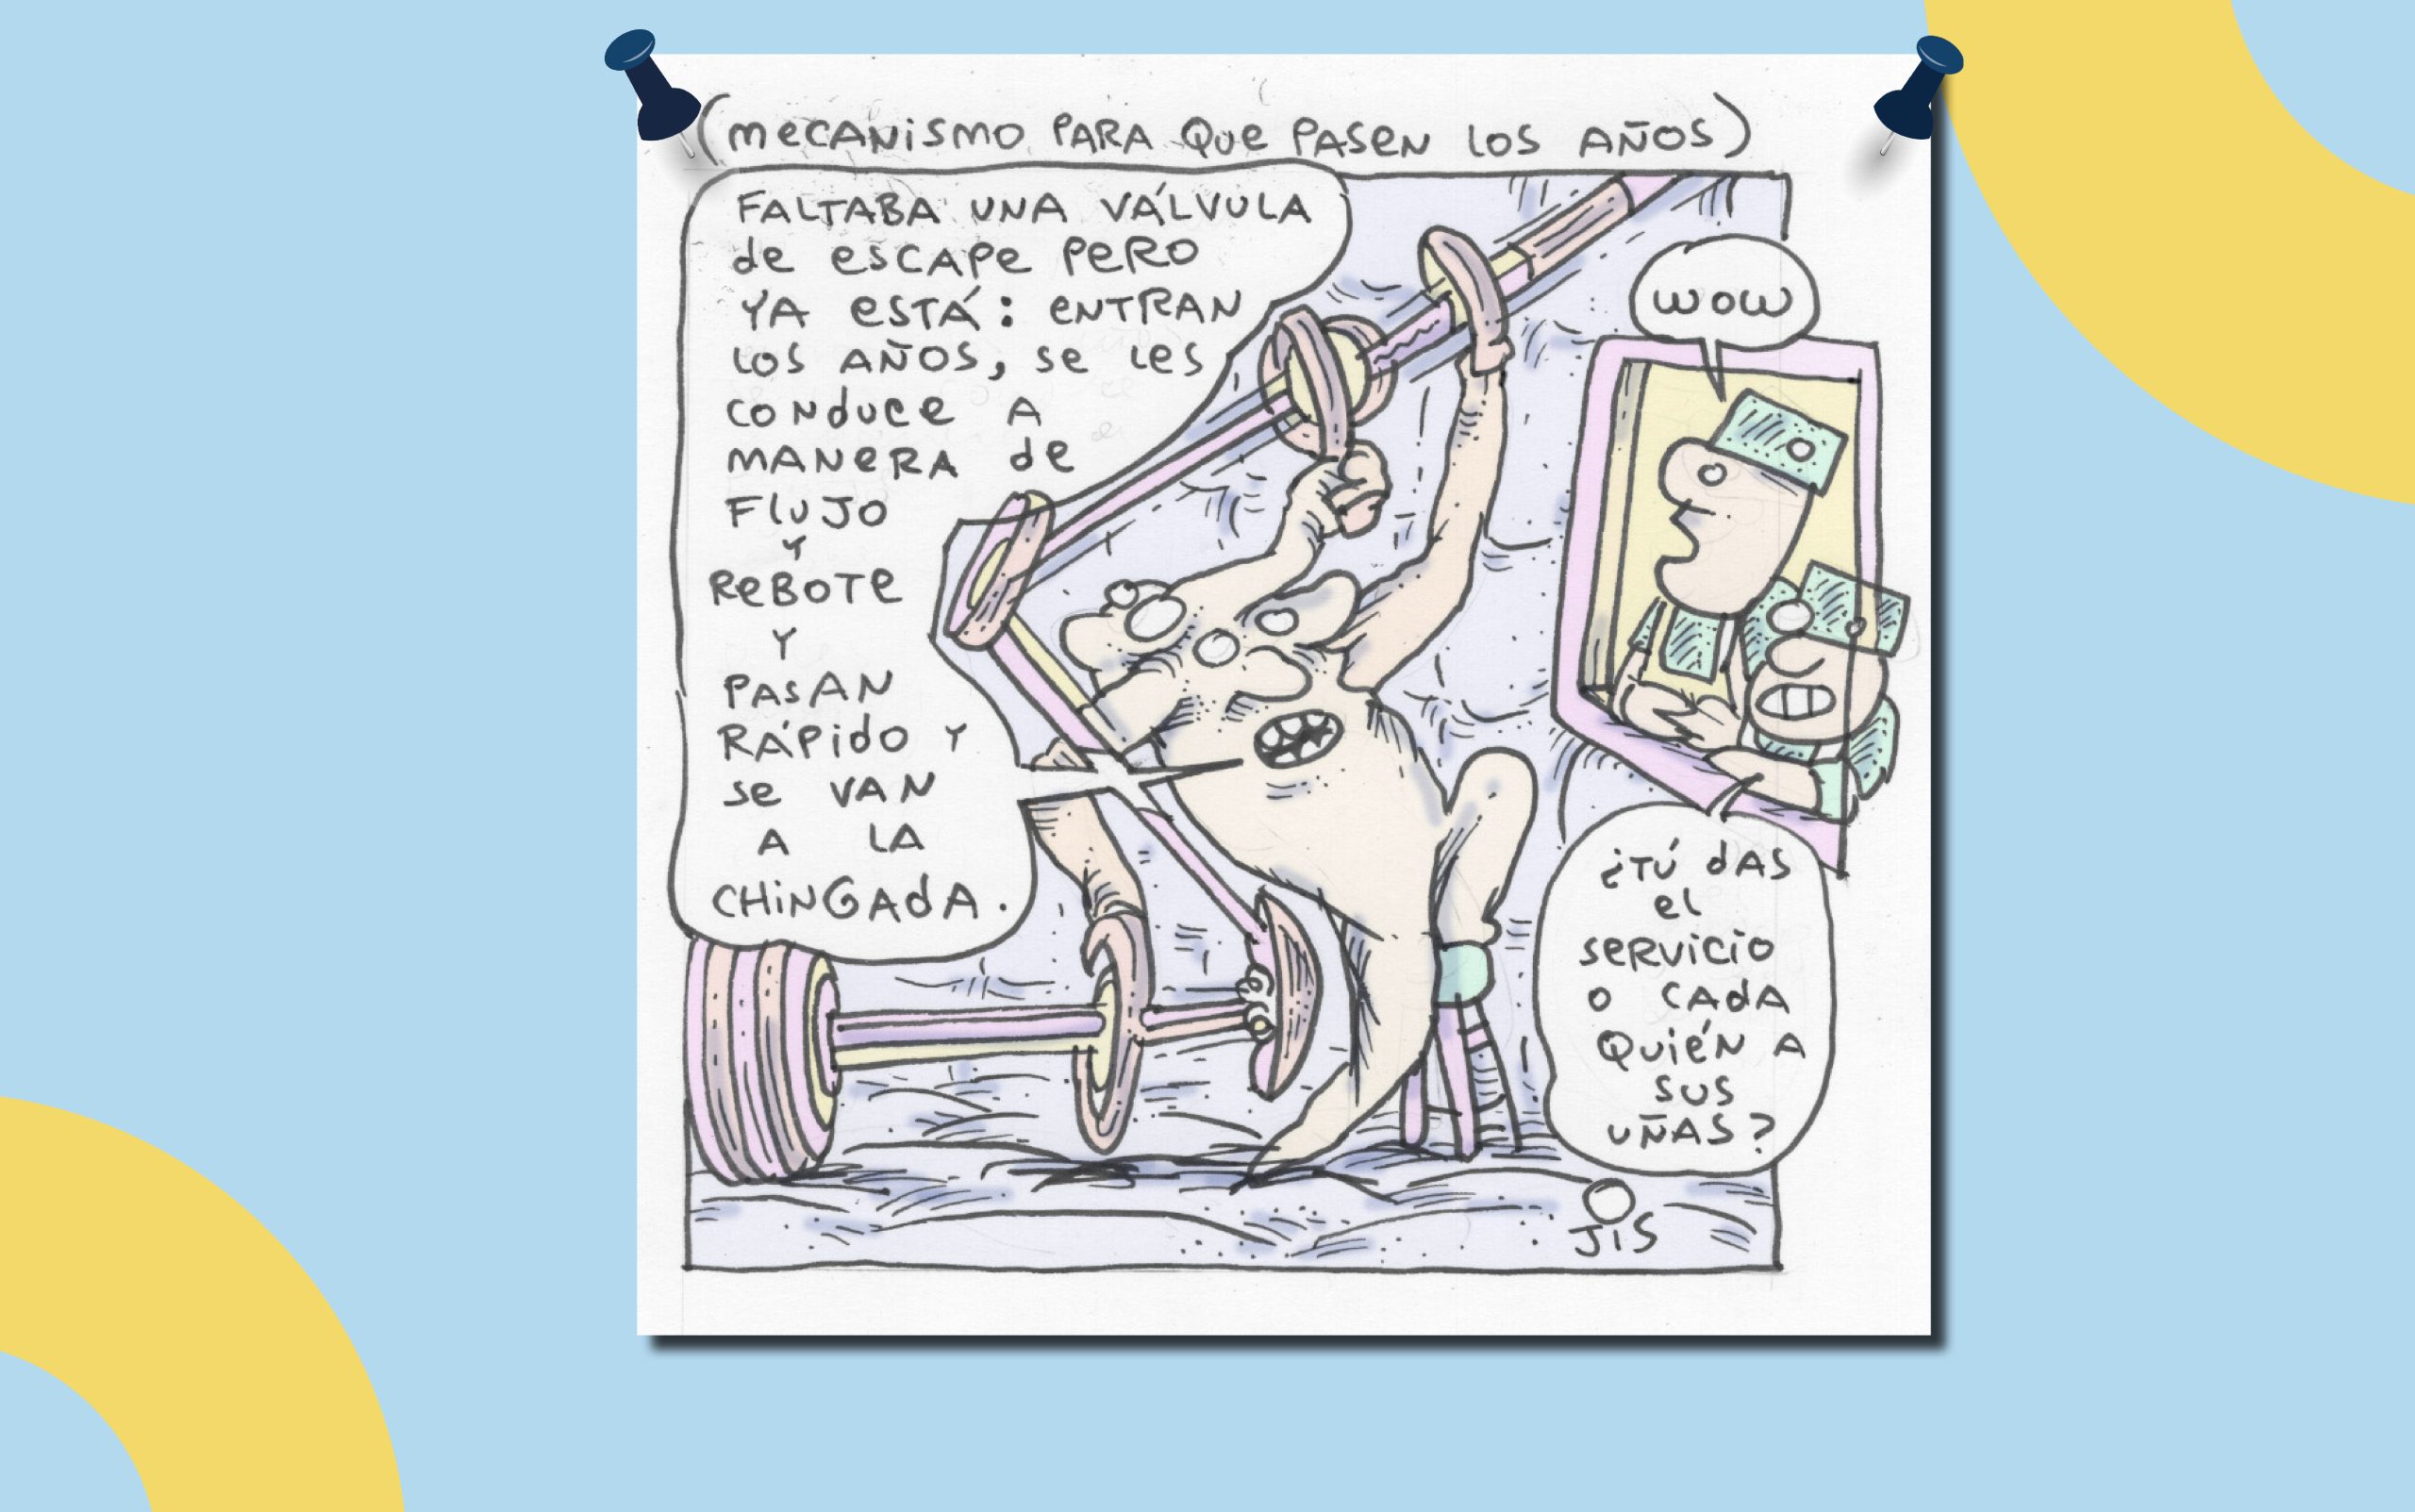 (MECANISMO PARA QUE PASEN LOS AÑOS)
FALTABA UNA VÁLVULA
de ESCAPE PERO
YA ESTÁ: ENTRAN
LOS AÑOS, SE LES
CONDUCE A
MANERA de
FLUJO
Y
REBOTE
Y
PASAN
RÁPIDO Y
SE VAN
A LA
CHINGADA.
WOW
¿TÚ dAS
el
SERVICIO
O CADA
QUIÉN A
SUS
UÑAS?
JIS